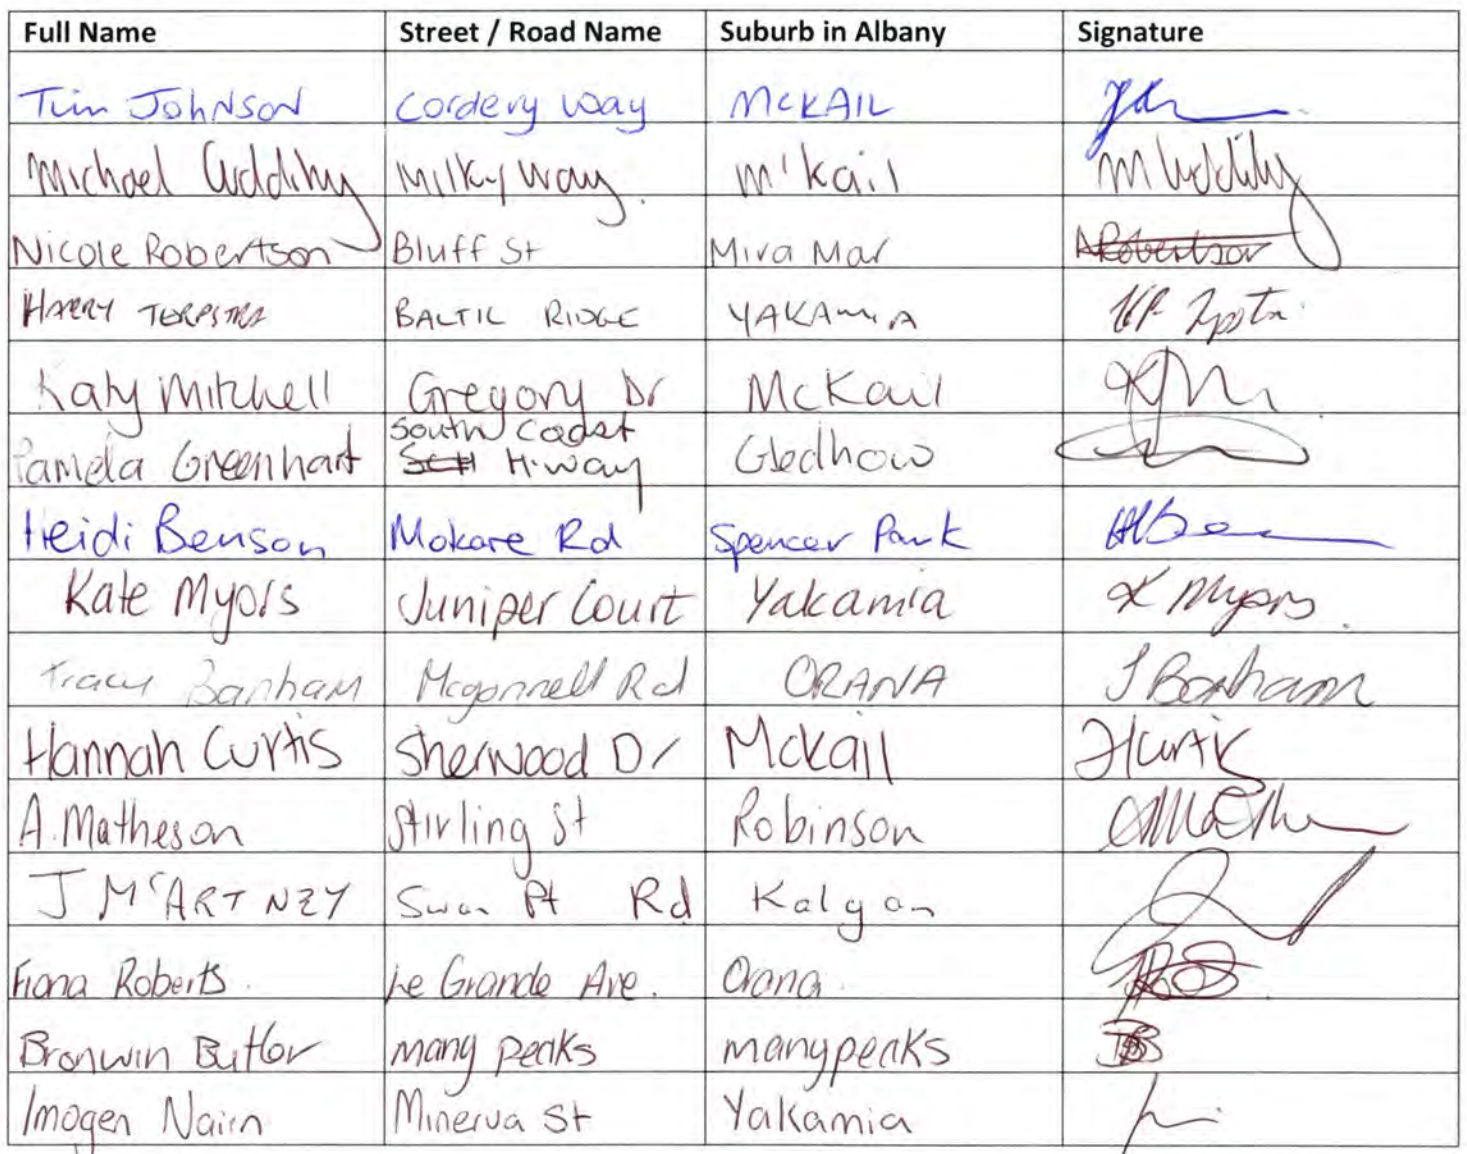 Full Name Street / Road Name Suburb in Albany Signature
Tim Johnson Cordery Way McKAIL
Michael Cuddihy Milky Way. M'kail
Nicole Robertson Bluff St Mira Mar NRobertson
HARRY TERPSTRA BALTIC RIDGE YAKAMIA
Katy Mitchell Gregory Dr McKail
South Coast
Pamela Greenhart H.way Gledhow
Heidi Benson Mokare Rd Spencer Park
Kate Myors Juniper Court Yakamia K Myors
Tracy Banham Mcgonnell Rd ORANA T Banham
Hannah Curtis Sherwood Dr Mckail HCurtis
A. Matheson Stirling St Robinson
J McARTNEY Swan Pt Rd Kalgan
Fiona Roberts. Le Grande Ave. Orana.
Bronwin Butler many peaks manypeaks
Imogen Nairn Minerva St Yakamia